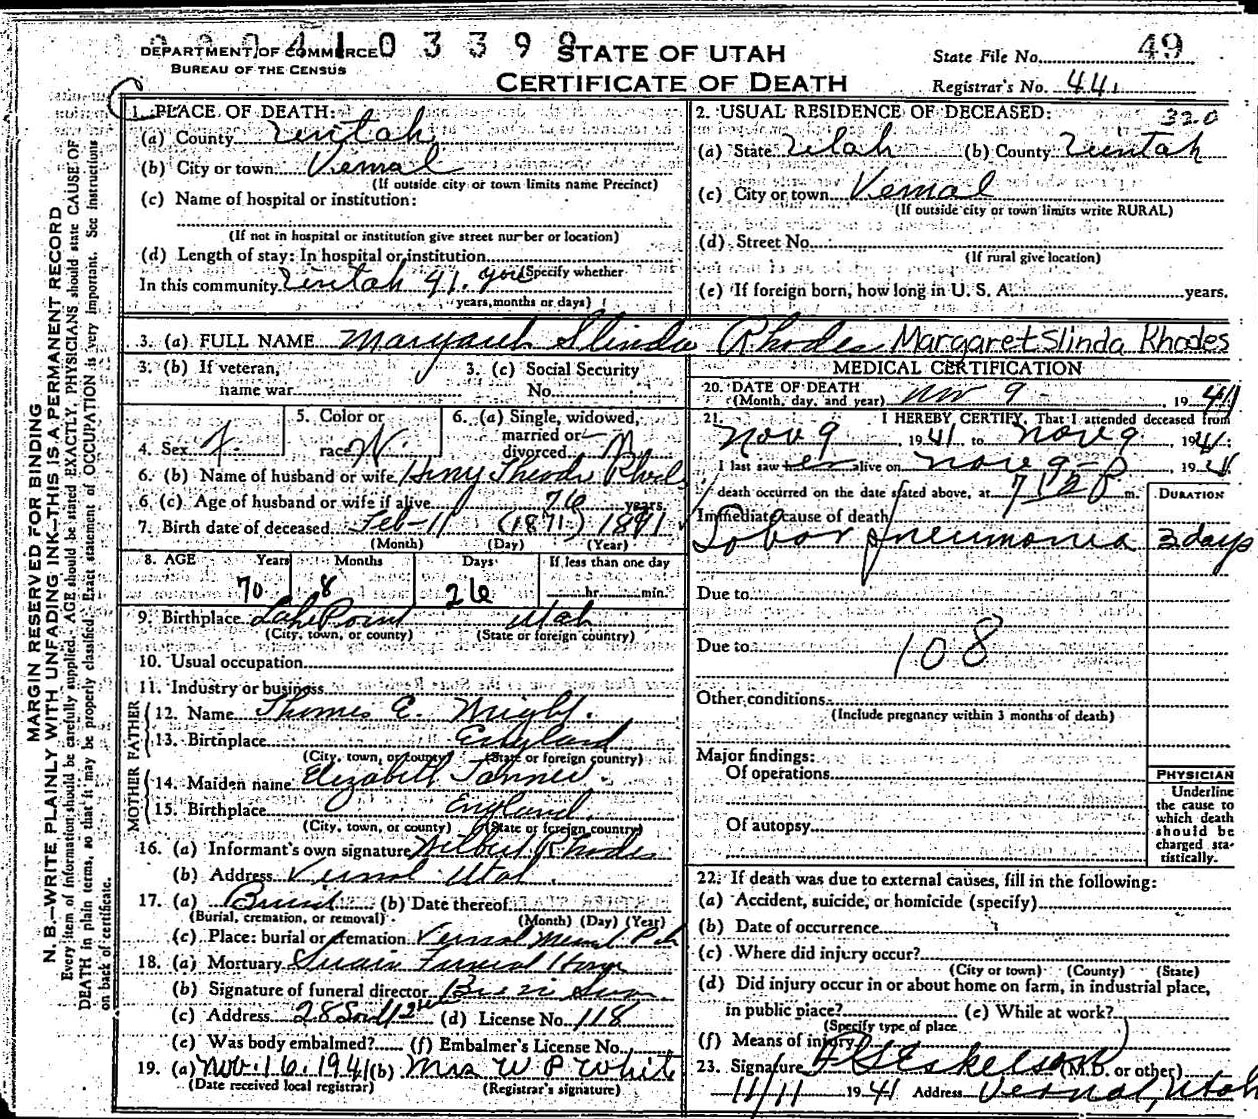 0 0 0 4 1 0 3 3 9 9
DEPARTMENT OF COMMERCE
BUREAU OF THE CENSUS
STATE OF UTAH
CERTIFICATE OF DEATH
State File No. 49
Registrar's No. 441
MARGIN RESERVED FOR BINDING
N. B.—WRITE PLAINLY WITH UNFADING INK—THIS IS A PERMANENT RECORD
Every item of information should be carefully supplied. AGE should be stated EXACTLY. PHYSICIANS should state CAUSE OF
DEATH in plain terms, so that it may be properly classified. Exact statement of OCCUPATION is very important. See Instructions
on back of certificate.
1. PLACE OF DEATH:
(a) County Uintah
(b) City or town Vernal
(If outside city or town limits name Precinct)
(c) Name of hospital or institution:
(If not in hospital or institution give street number or location)
(d) Length of stay: In hospital or institution
(Specify whether
In this community Uintah 41 yrs
years, months or days)
2. USUAL RESIDENCE OF DECEASED: 320
(a) State Utah (b) County Uintah
(c) City or town Vernal
(If outside city or town limits write RURAL)
(d) Street No.
(If rural give location)
(e) If foreign born, how long in U. S. A. years.
3. (a) FULL NAME Margaret Slinda Rhodes Margaret Slinda Rhodes
3. (b) If veteran,
name war
3. (c) Social Security
No.
4. Sex F.
5. Color or
race W.
6. (a) Single, widowed,
married or
divorced M
6. (b) Name of husband or wife Henry Theodr Rhodes
6. (c) Age of husband or wife if alive 76 years
7. Birth date of deceased Feb-11 (1871) 1891
(Month) (Day) (Year)
8. AGE Years Months Days If less than one day
70 8 26 hr. min.
9. Birthplace Lake Point Utah
(City, town, or county) (State or foreign country)
10. Usual occupation
11. Industry or business
FATHER
12. Name Thomas E. Wright.
13. Birthplace England
(City, town, or county) (State or foreign country)
MOTHER
14. Maiden name Elizabeth Tanner.
15. Birthplace England.
(City, town, or county) (State or foreign country)
16. (a) Informant's own signature Wilbert Rhodes
(b) Address Vernal Utah.
17. (a) Burial (b) Date thereof
(Burial, cremation, or removal) (Month) (Day) (Year)
(c) Place: burial or cremation Vernal
18. (a) Mortuary Swain Funeral Home
(b) Signature of funeral director
(c) Address 28 South 2nd (d) License No. 118
(e) Was body embalmed? (f) Embalmer's License No.
19. (a) Nov. 16. 1941 (b) Mrs W P White
(Date received local registrar) (Registrar's signature)
MEDICAL CERTIFICATION
20. DATE OF DEATH
(Month, day, and year) Nov 9 , 1941
21. I HEREBY CERTIFY, That I attended deceased from
Nov 9, 1941 to Nov 9, 1941:
I last saw her alive on Nov 9- , 1941
death occurred on the date stated above, at P m.
DURATION
Immediate cause of death
Lobar pneumonia 3 days
Due to
Due to 108
Other conditions
(Include pregnancy within 3 months of death)
Major findings:
Of operations
Of autopsy
PHYSICIAN
Underline
the cause to
which death
should be
charged sta-
tistically.
22. If death was due to external causes, fill in the following:
(a) Accident, suicide, or homicide (specify)
(b) Date of occurrence
(c) Where did injury occur?
(City or town) (County) (State)
(d) Did injury occur in or about home on farm, in industrial place,
in public place? (e) While at work?
(Specify type of place)
(f) Means of injury
23. Signature (M.D. or other)
11/11 1941 Address Vernal, Utah